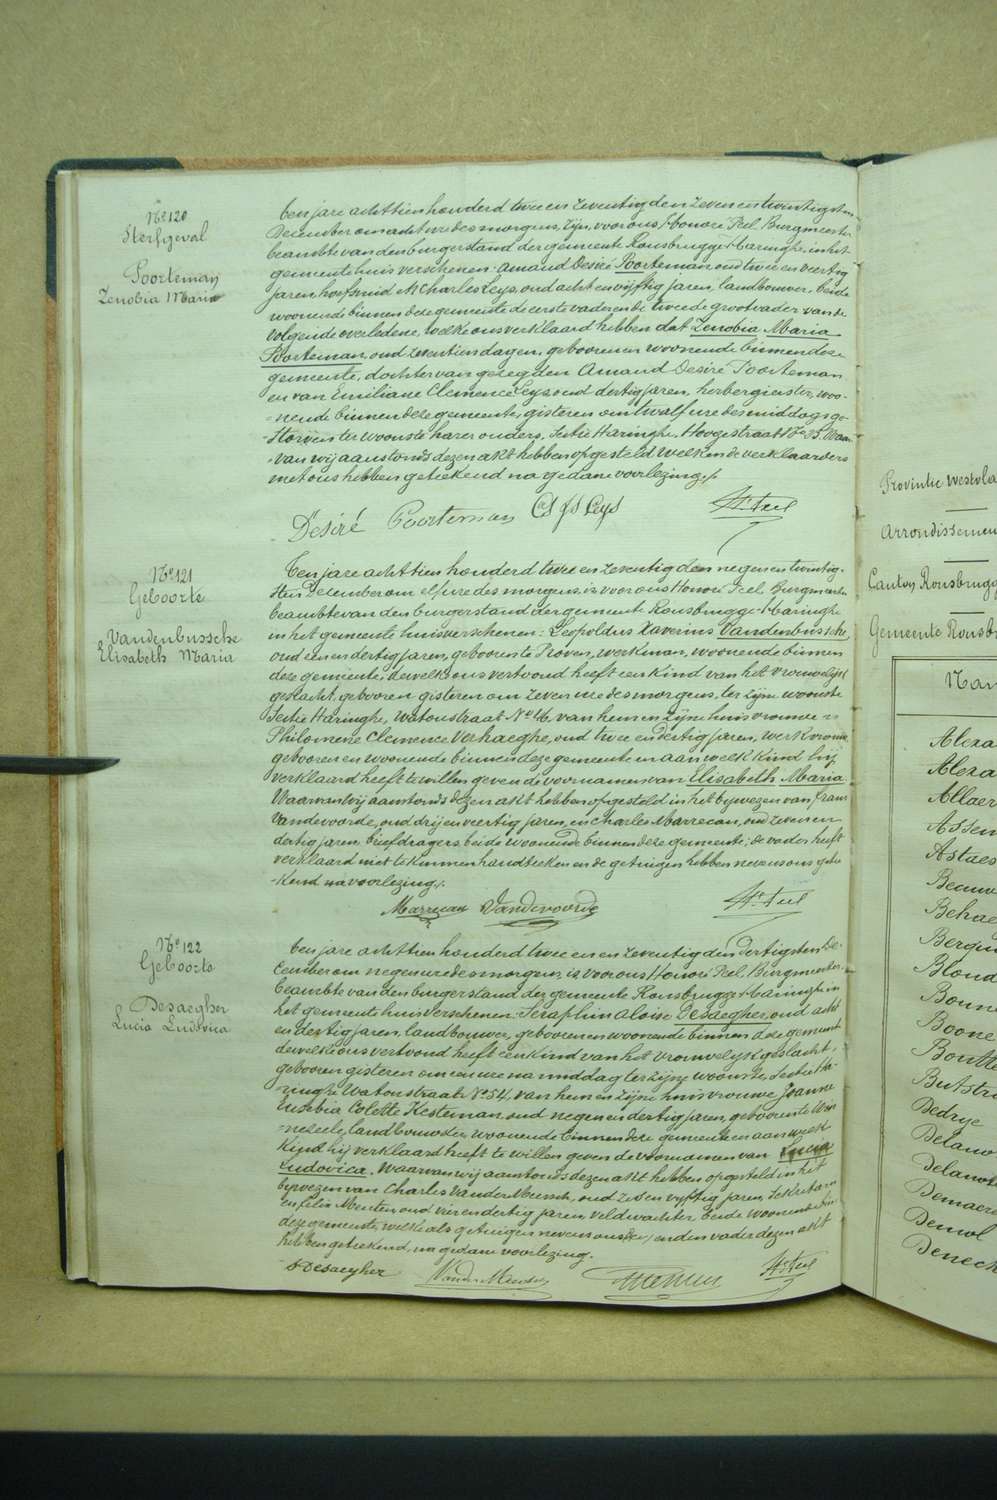 No 120
Sterfgeval
Poorteman
Zenobia Maria
Ten jare achttien honderd twee en zeventig den zeven en twintigsten
December om acht ure des morgens, zijn, voor ons, Honoré Peel Burgmeester
beambte van den burgerstand der gemeente Rousbrugge-Haringhe, in het
gemeentehuis verschenen: Amand Desiré Poorteman oud twee en veertig
jaren hoefsmid & Charles Leys, oud acht en vijftig jaren, landbouwer, beide
woonende binnen deze gemeente de eerste vader en de tweede grootvader van de
volgende overledene, welke ons verklaard hebben dat Zenobia Maria
Poorteman, oud zeventien dagen, geboren en woonende binnen deze
gemeente, dochter van gezegden Amand Desiré Poorteman
en van Emiliane Clemence Leys oud dertig jaren, herbergierster, woo-
-nende binnen deze gemeente, gisteren om twalf ure des middags ge-
-storven ter woonste harer ouders, Sectie Haringhe, Hoogestraat No 35. Waar
-van wij aanstonds dezen akt hebben opgesteld welken de verklaarders
met ons hebben geteekend na gedane voorlezing./.
Désiré Poorteman Cs Js Leys He Peel
No 121
Geboorte
Vandenbussche
Elisabeth Maria
Ten jare achttien honderd twee en zeventig den negen en twintig-
sten December om elf ure des morgens is voor ons Honoré Peel Burgmeester
beambte van den burgerstand der gemeente Rousbrugge-Haringhe
in het gemeente huis verschenen: Leopoldus Xaverius Vandenbussche,
oud een en dertig jaren, geboren te Proven, werkman, woonende binnen
deze gemeente, dewelke ons vertoond heeft een kind van het vrouwelijk
geslacht, geboren gisteren om zeven ure des morgens, ter zijne woonste
Sectie Haringhe, Watoustraat No 46, van hem en zijne huisvrouwe
Philomene Clemence Verhaeghe, oud twee en dertig jaren, werkvrouw
geboren en woonende binnen deze gemeente en aan welk kind hij
verklaard heeft te willen geven de voornamen van Elisabeth Maria
Waarvan wij aanstonds dezen akt hebben opgesteld in het bijwezen van Frans
Vandevoorde, oud drij en veertig jaren, en Charles Marrecau, oud zeven en
dertig jaren briefdragers, beide woonende binnen deze gemeente; de vader heeft
verklaard niet te kunnen handteeken en de getuigen hebben nevens ons getee
-kend na voorlezing./.
Marrecau Vandevoorde He Peel
No 122
Geboorte
Desaegher
Lucia Ludovica
Ten jare achttien honderd twee en zeventig den dertigsten De-
cember om negen ure des morgens, is voor ons Honoré Peel, Burgmeester,
beambte van den burgerstand der gemeente Rousbrugge-Haringhe in
het gemeentehuis verschenen: Seraphin Aloise Desaegher, oud acht
en dertig jaren, landbouwer, geboren en woonende binnen deze gemeente
dewelke ons vertoond heeft een kind van het vrouwelijk geslacht,
geboren gisteren om een ure na middag ter zijne woonste, Sectie Ha-
ringhe Watoustraat No 54, van hem en zijne huisvrouwe Joanna
Eusebia Colette Kesteman, oud negen en dertig jaren, geboren te Win
-nezeele, landbouwster, woonende binnen deze gemeente en aan welk
kind hij verklaard heeft te willen geven de voornamen van Lucia
Ludovica. Waarvan wij aanstonds dezen akt hebben opgesteld in het
bijwezen van Charles Vander Meersch, oud zes en vijftig jaren, Sekretaris
en Felix Meuten, oud vier en dertig jaren, veldwachter beide woonende binnen
deze gemeente, welke als getuigen nevens ons en den vader dezen akt
hebben geteekend, na gedane voorlezing.
S Desaegher Vander Meersch He Peel
Provintie Westvla
Arrondissemen
Canton Rousbrugg
Gemeente Rousb
Nam
Alexa
Alexa
Allaer
Assem
Astaes
Beauv
Behae
Bergu
Blond
Bonne
Boone
Boutte
Butstr
Dedrye
Delano
Delanot
Demaere
Demol
Denech